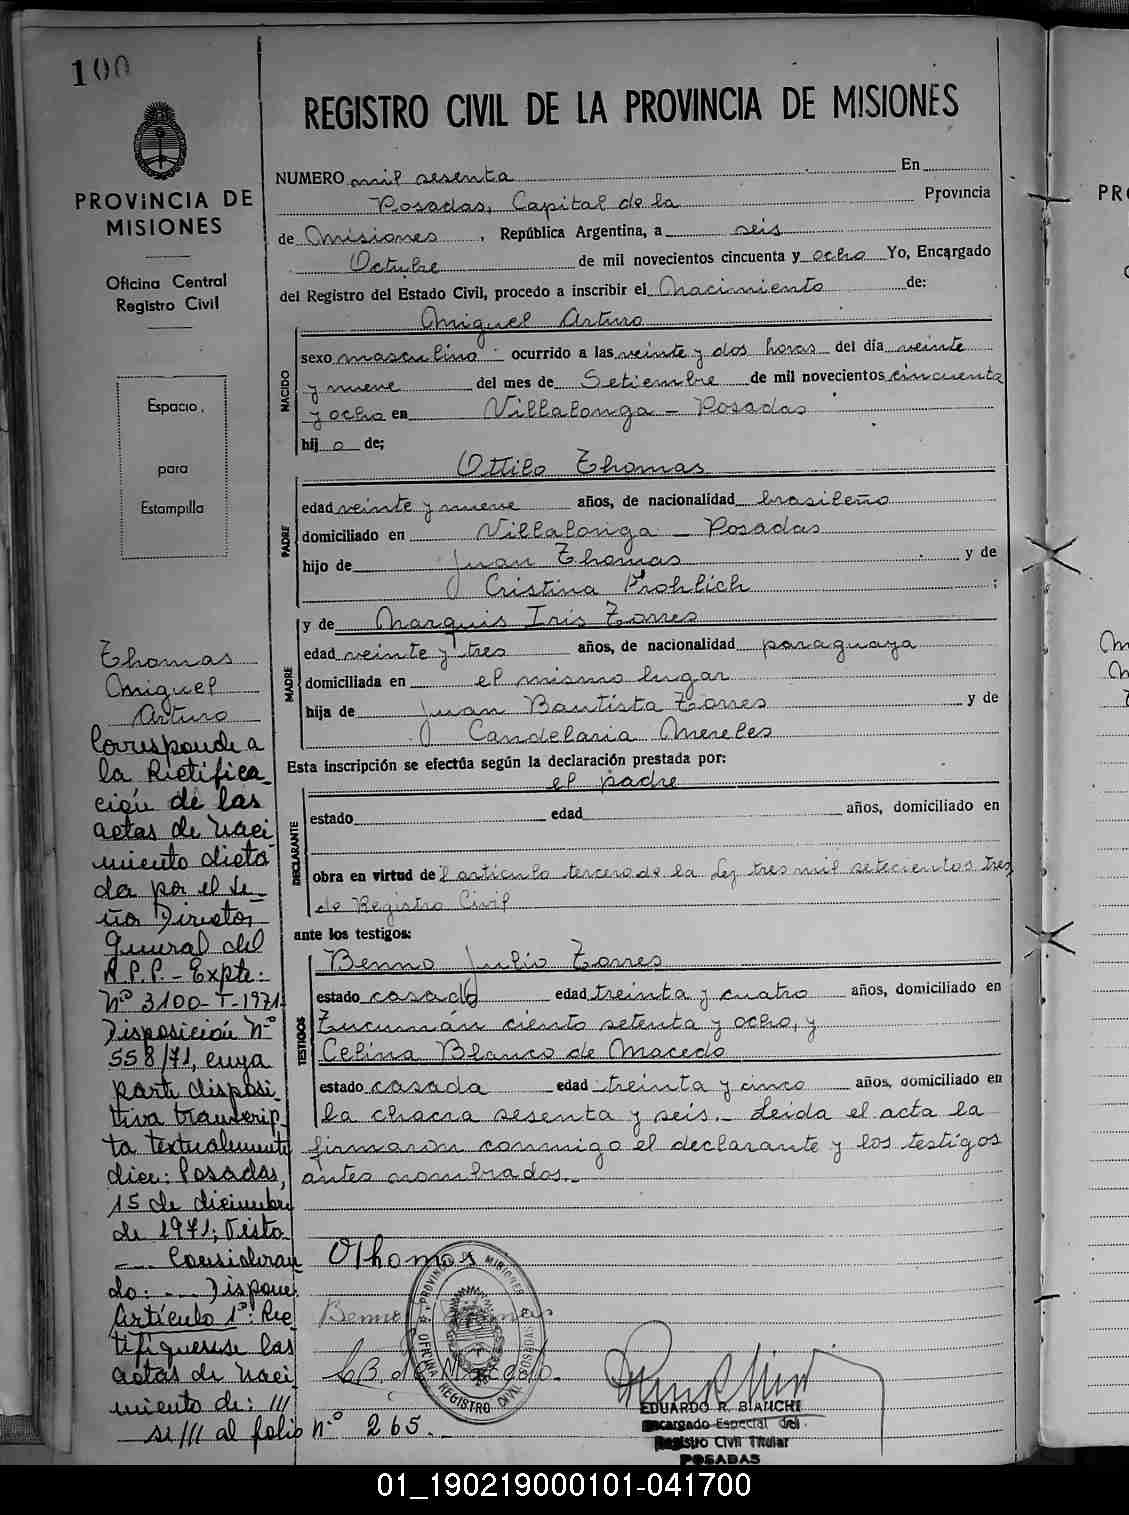 100
PROVINCIA DE
MISIONES
Oficina Central
Registro Civil
Espacio
para
Estampilla
Thomas
Miguel
Arturo
Corresponde a
la Rectifica
ción de las
actas de naci
miento dicta
da por el Se-
ñor Director
General del
R.P.P.- Expte:
Nº 3100-T-1971
Disposición Nº
558/71, cuya
parte disposi
tiva transcrip
ta textualmente
dice: Posadas,
15 de diciembre
de 1971; Visto
--- Consideran
do: --- Dispone:
Artículo 1º: Rec
tifíquense las
actas de naci
miento de: ///
se/// al folio nº 265.-
REGISTRO CIVIL DE LA PROVINCIA DE MISIONES
NUMERO mil sesenta En
Posadas, Capital de la Provincia
de Misiones, República Argentina, a seis
Octubre de mil novecientos cincuenta y ocho Yo, Encargado
del Registro del Estado Civil, procedo a inscribir el Nacimiento de:
NACIDO
Miguel Arturo
sexo masculino ocurrido a las veinte y dos horas del día veinte
y nueve del mes de Setiembre de mil novecientos cincuenta
y ocho en Villalonga - Posadas
hij o de;
PADRE
Ottilo Thomas
edad veinte y nueve años, de nacionalidad brasileño
domiciliado en Villalonga - Posadas
hijo de Juan Thomas y de
Cristina Frohlich ;
MADRE
y de Marquis Iris Torres
edad veinte y tres años, de nacionalidad paraguaya
domiciliada en el mismo lugar
hija de Juan Bautista Torres y de
Candelaria Mereles
Esta inscripción se efectúa según la declaración prestada por:
DECLARANTE
el padre
estado edad años, domiciliado en
obra en virtud del artículo tercero de la Ley tres mil setecientos tres
de Registro Civil
ante los testigos:
TESTIGOS
Benno Julio Torres
estado casado edad treinta y cuatro años, domiciliado en
Tucumán ciento setenta y ocho, y
Celina Blanco de Macedo
estado casada edad treinta y cinco años, domiciliado en
la chacra sesenta y seis.- Leida el acta la
firmaron conmigo el declarante y los testigos
antes nombrados.-
OThomas
Benno
C B. de Macedo.
PROVINCIA DE MISIONES
OFICINA REGISTRO CIVIL POSADAS
EDUARDO R. BIANCHI
Encargado Especial del
Registro Civil Titular
POSADAS
01_190219000101-041700